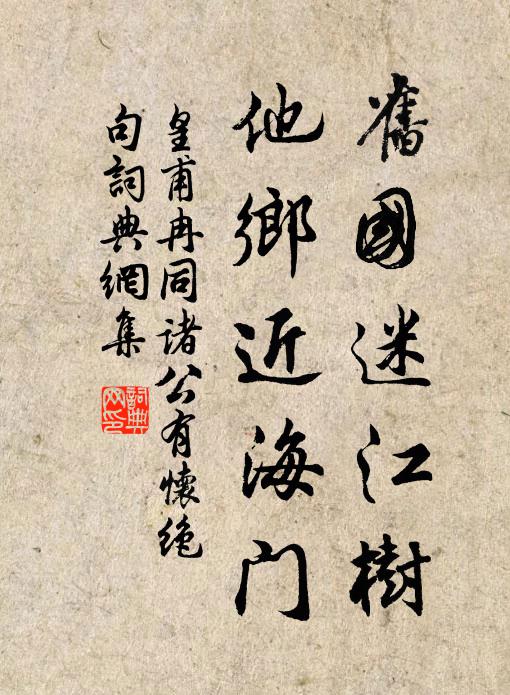 舊國迷江樹
他鄉近海門
皇甫冉同諸公有懷絶
句詞典網集
詞典
网印